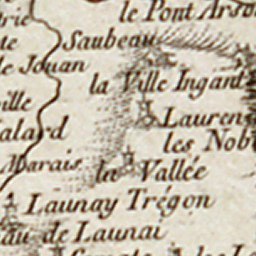 le Pont
Saubeau
le Jouan
la Ville Ingant
ville
Lauren
alard
les Nob
Marais
la Vallée
Launay Trégon
au de Launai